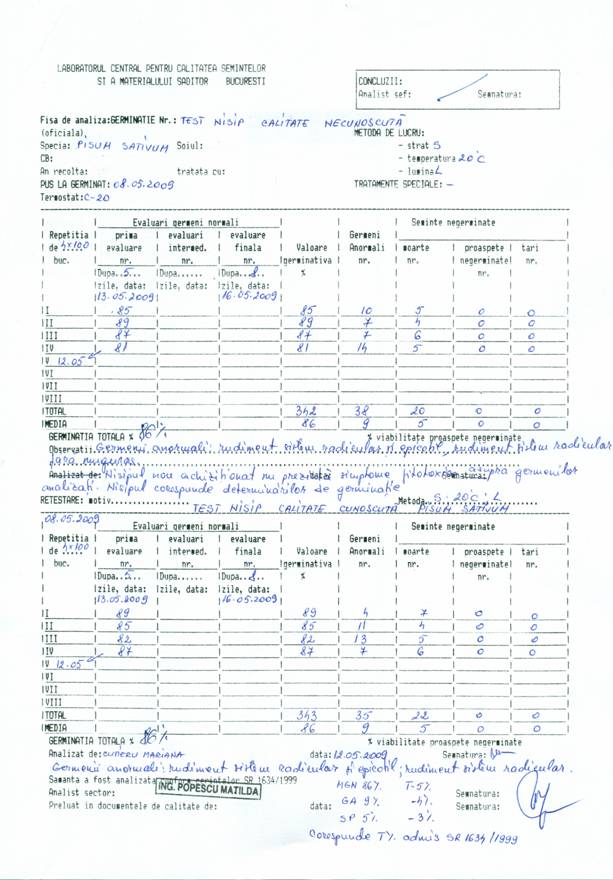 LABORATORUL CENTRAL PENTRU CALITATEA SEMINTELOR
SI A MATERIALULUI SADITOR BUCURESTI
CONCLUZII:
Analist sef: Semnatura:
Fisa de analiza:GERMINATIE Nr.: TEST NISIP CALITATE NECUNOSCUTĂ
(oficiala) METODA DE LUCRU:
Specia: PISUM SATIVUM Soiul: - strat S
CB: - temperatura 20°C
An recolta: tratata cu: - lumina L
PUS LA GERMINAT: 08.05.2009 TRATAMENTE SPECIALE: -
Termostat: C-20
Evaluari germeni normali Seminte negerminate
Repetitia prima evaluari evaluare Valoare Germeni
de 4x100 evaluare intermed. finala germinativa Anormali moarte proaspete tari
buc. nr. nr. nr. nr. nr. negerminate nr.
nr.
Dupa..5... Dupa...... Dupa...8.. %
zile, data: zile, data: zile, data:
13.05.2009 16.05.2009
I 85 85 10 5 0 0
II 89 89 7 4 0 0
III 87 87 7 6 0 0
IV 81 81 14 5 0 0
V 12.05
VI
VII
VIII
TOTAL 342 38 20 0 0
MEDIA 86 9 5 0 0
GERMINATIA TOTALA % 86% % viabilitate proaspete negerminate
Observatii: Germenii anormali: rudiment sistem radicular și epicotil, rudiment sistem radicular
fara muguras.
Analizat de: Nisipul nou achizitionat nu prezintă simptome fitotoxice asupra germenilor
analizați. Nisipul corespunde determinărilor de germinație
RETESTARE: motiv Metoda S. 20°C. L
TEST NISIP CALITATE CUNOSCUTĂ PISUM SATIVUM
08.05.2009
Evaluari germeni normali Seminte negerminate
Repetitia prima evaluari evaluare Valoare Germeni
de 4x100 evaluare intermed. finala germinativa Anormali moarte proaspete tari
buc. nr. nr. nr. nr. nr. negerminate nr.
nr.
Dupa..5... Dupa...... Dupa...8.. %
zile, data: zile, data: zile, data:
13.05.2009 16.05.2009
I 89 89 4 7 0 0
II 85 85 11 4 0 0
III 82 82 13 5 0 0
IV 87 87 7 6 0 0
V 12.05
VI
VII
VIII
TOTAL 343 35 22 0 0
MEDIA 86 9 5 0 0
GERMINATIA TOTALA % 86% % viabilitate proaspete negerminate
Analizat de: MARIANA data: 12.05.2009 Semnatura:
Germenii anormali: rudiment sistem radicular și epicotil; rudiment sistem radicular.
Samanta a fost analizata conform cerintelor SR 1634/1999
Analist sector: ING. POPESCU MATILDA MGN 86% T-5% Semnatura:
Preluat in documentele de calitate de: data: GA 9% -4% Semnatura:
SP 5% -3%
Corespunde T% admis SR 1634/1999